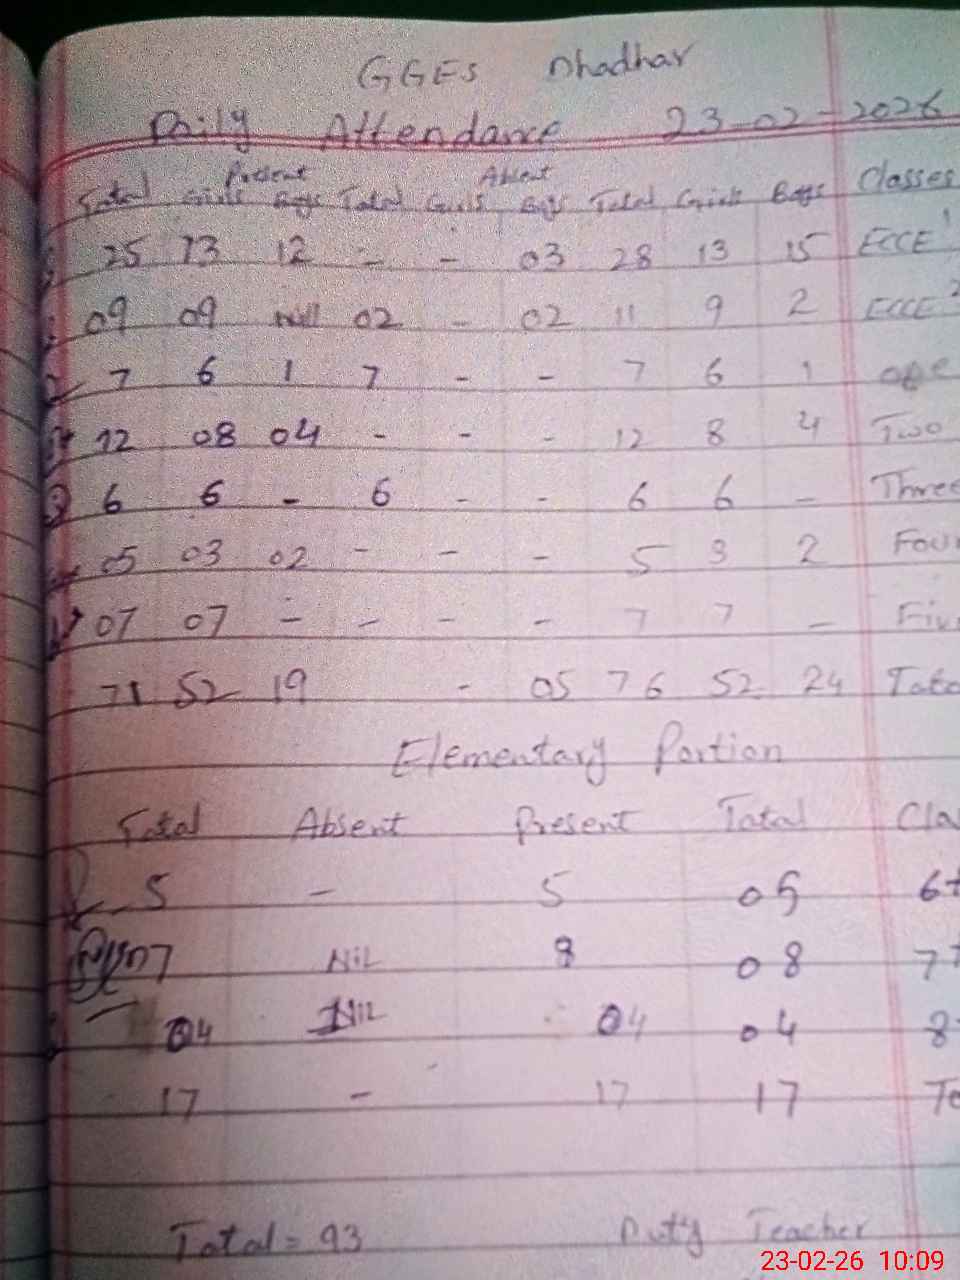 GGES Dhadhar
Daily Attendance 23-02-2026
Present Absent
Total Girls Boys Total Girls Boys Total Girls Boys Classes
25 13 12 - - 03 28 13 15 ECCE 1
09 09 null 02 - 02 11 9 2 ECCE 2
7 6 1 7 - - 7 6 1 one
12 08 04 - - - 12 8 4 Two
6 6 - 6 - - 6 6 - Three
05 03 02 - - - 5 3 2 Four
07 07 - - - - 7 7 - Five
71 52 19 - 05 76 52 24 Tota
Elementary Portion
Total Absent Present Total Cla
5 - 5 05 6t
07 Nil 8 08 7t
04 Nil 04 04 8
17 - 17 17 To
Total = 93 Duty Teacher
23-02-26 10:09